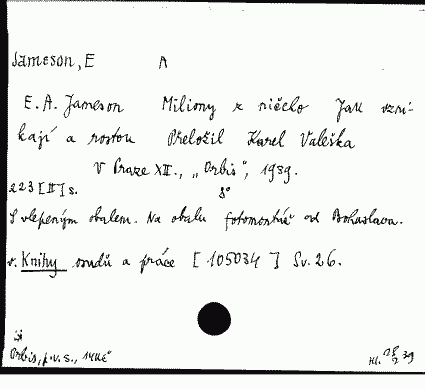 Jameson, E A
E. A. Jameson Miliony z ničeho Jak vzni-
kají a rostou Přeložil Karel Valeška
V Praze XII., „Orbis", 1939.
223 [II] s. 8°
S vlepeným obalem. Na obalu fotomontáž od Bohuslava.
v. Knihy osudů a práce [105034] Sv. 26.
Orbis, p.v.s.,